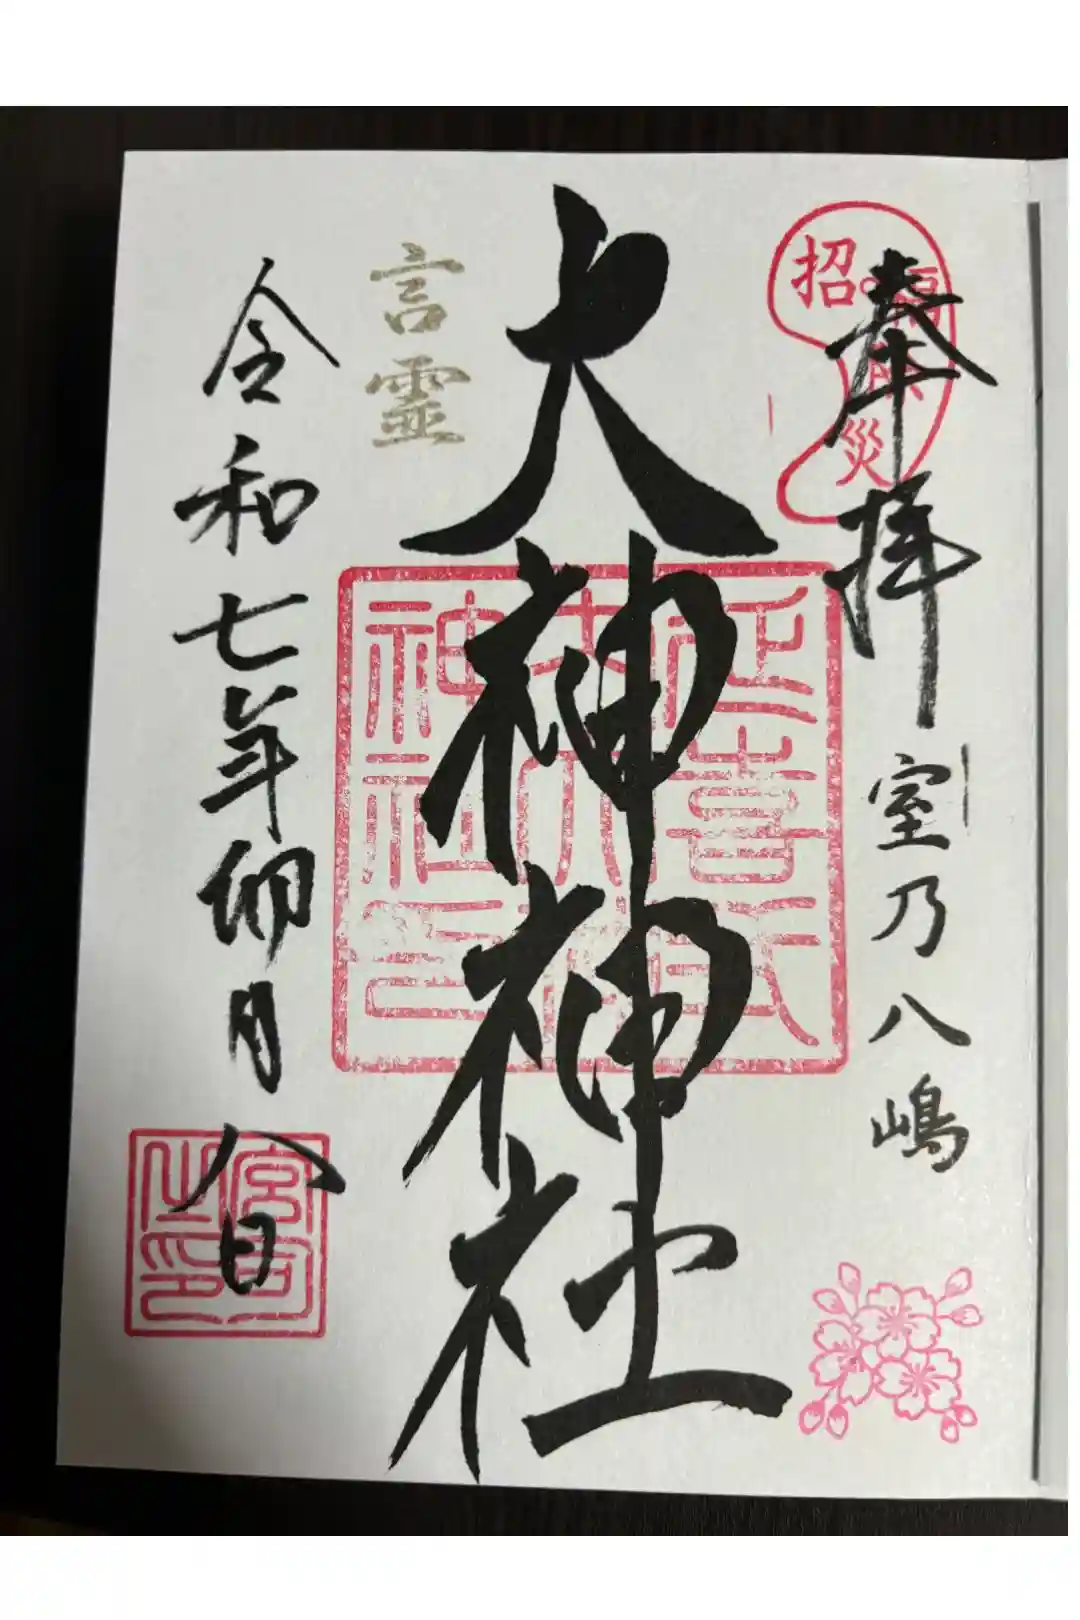 招福
災
奉拝
室乃八嶋
大神神社
延喜式
内大神
神社印
言霊
令和七年卯月八日
宮司
之印